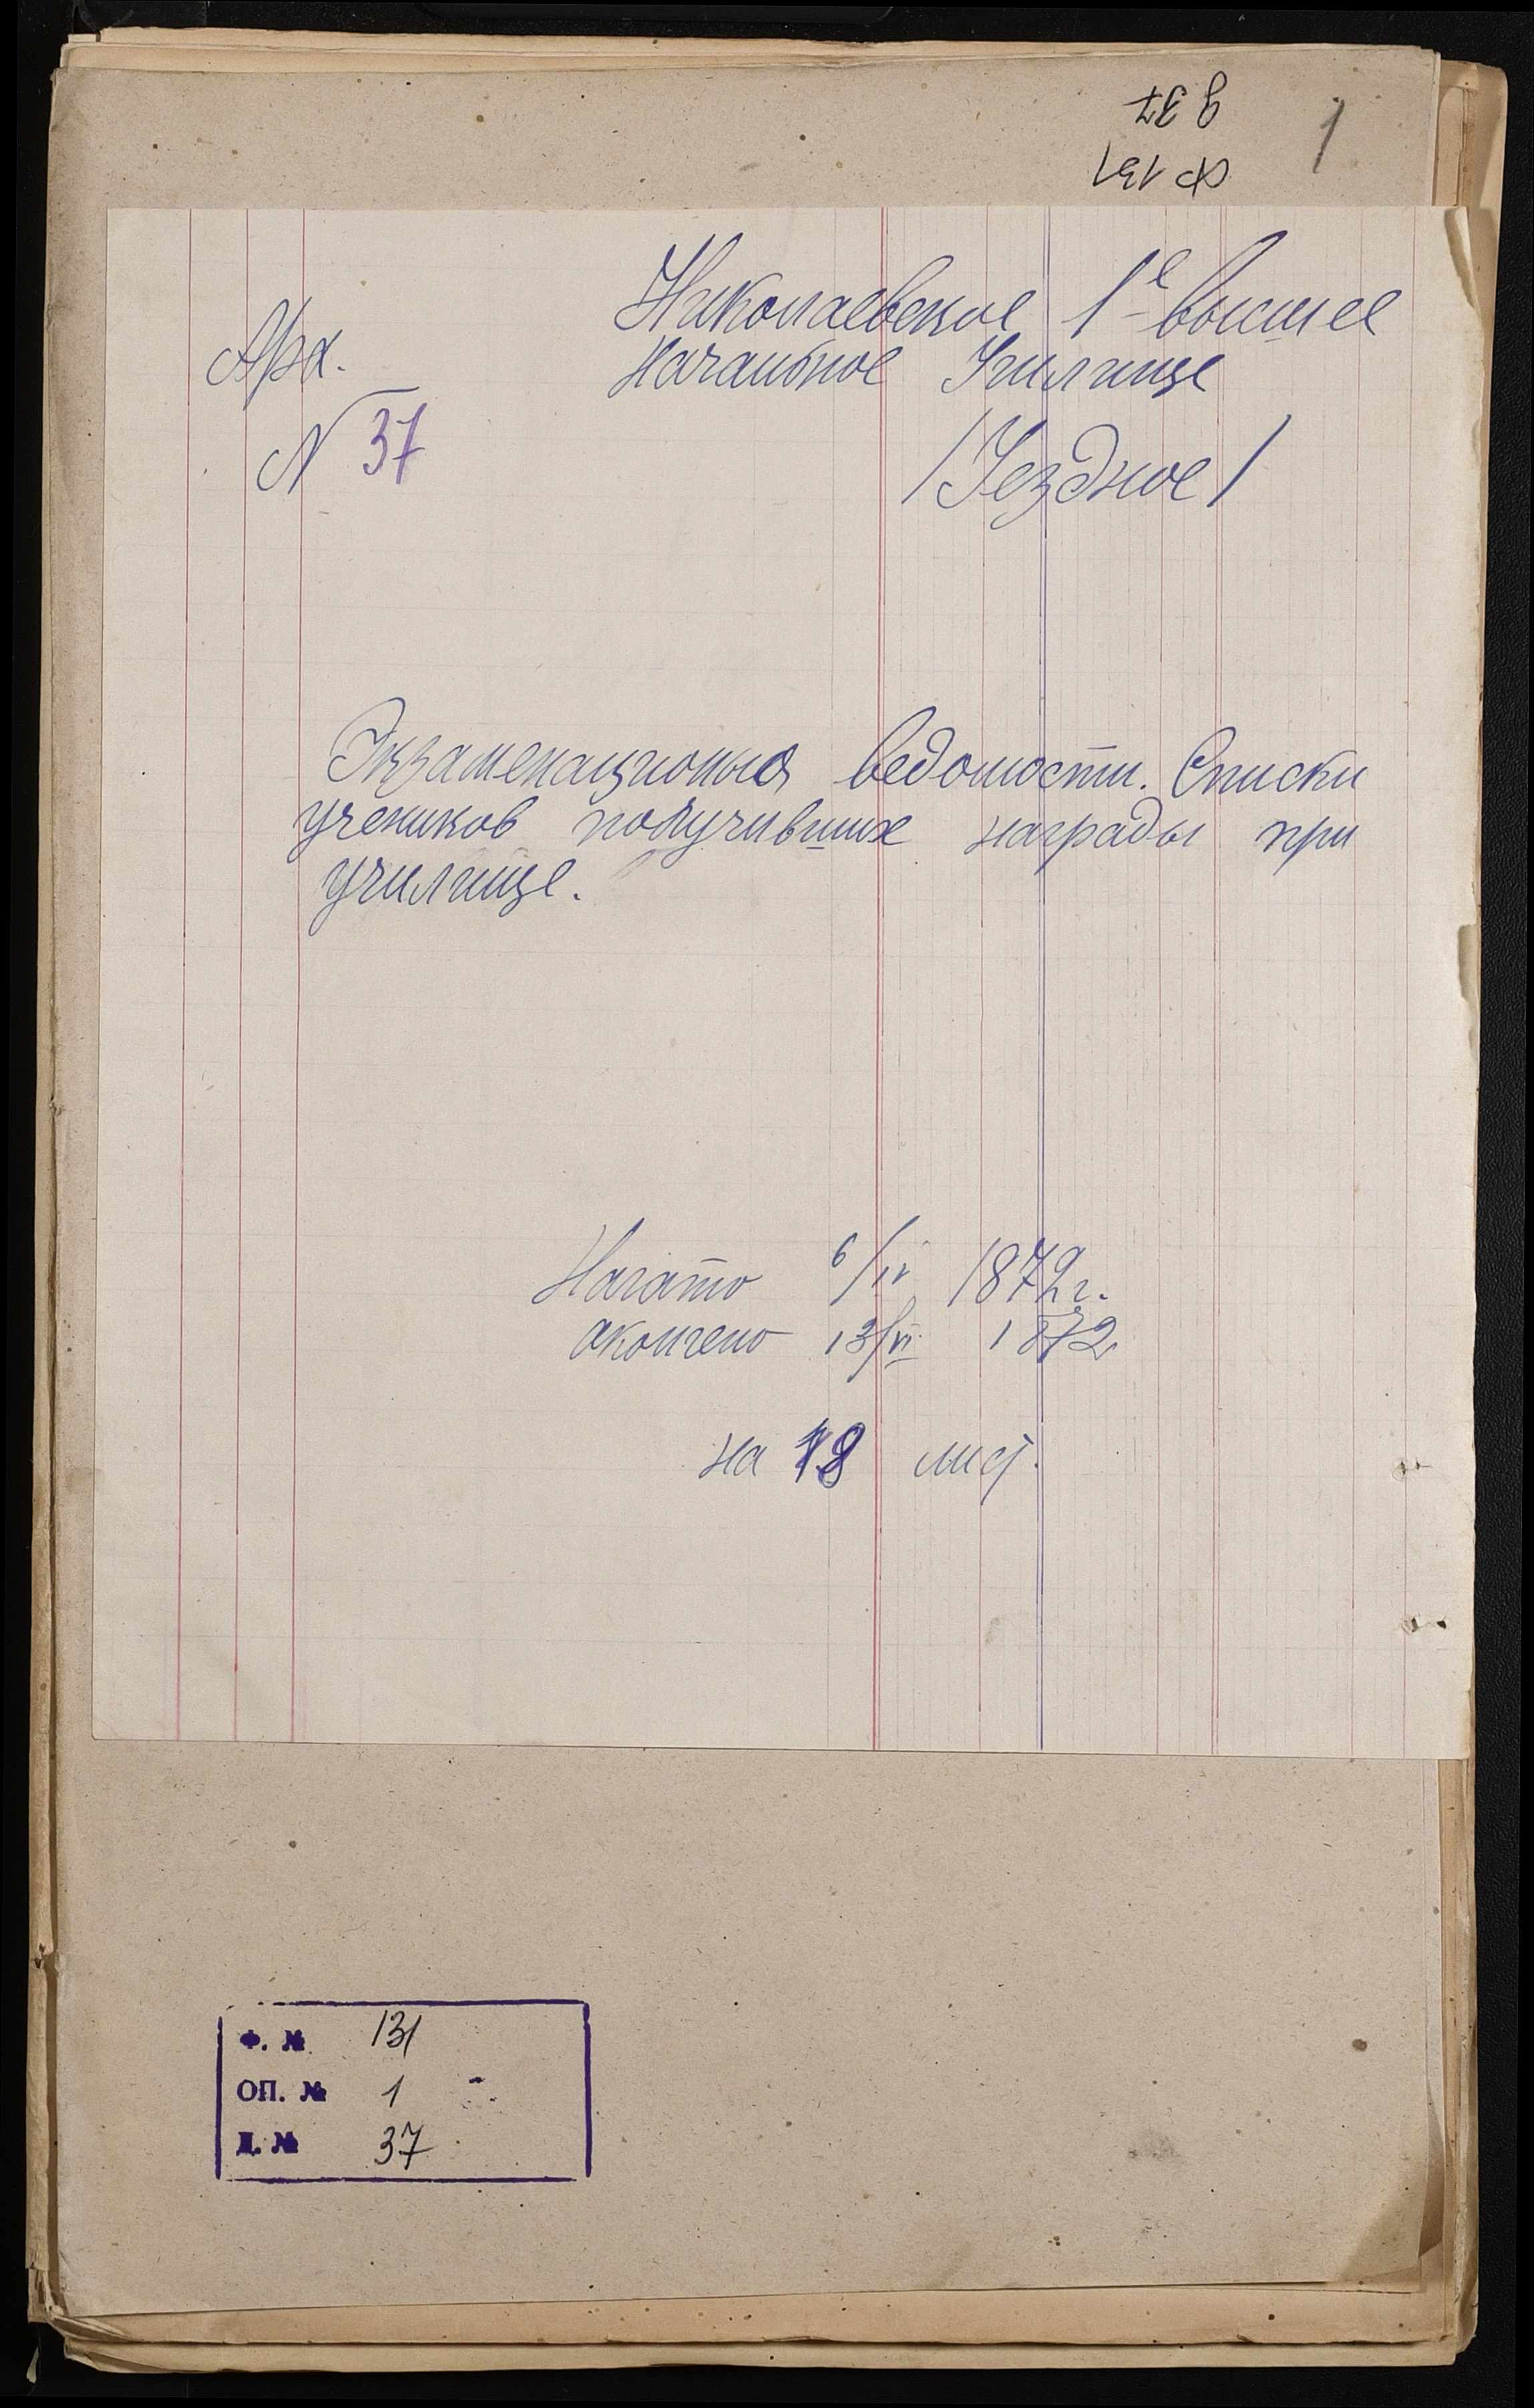 д 37
ф 131
1
Николаевское 1е высшее
Арх.
начальное Училище
N 37
/Уездное/
Экзаменационыя ведомости. Списки
учеников получивших награды при
училище.
Начато 6/IV 1872г.
окончено 13/VI 1872
на 18 лист.
Ф. № 131
ОП. № 1
Д. № 37